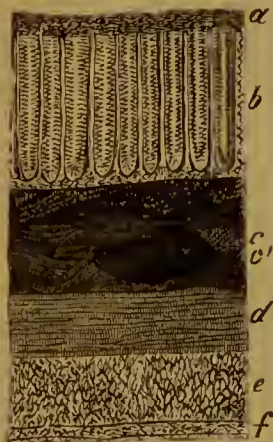 a
b
c
c'
d
e
f